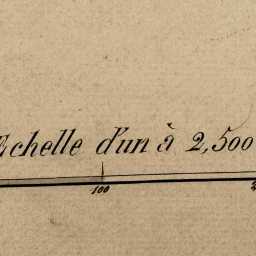 Echelle d'un à 2,500
100